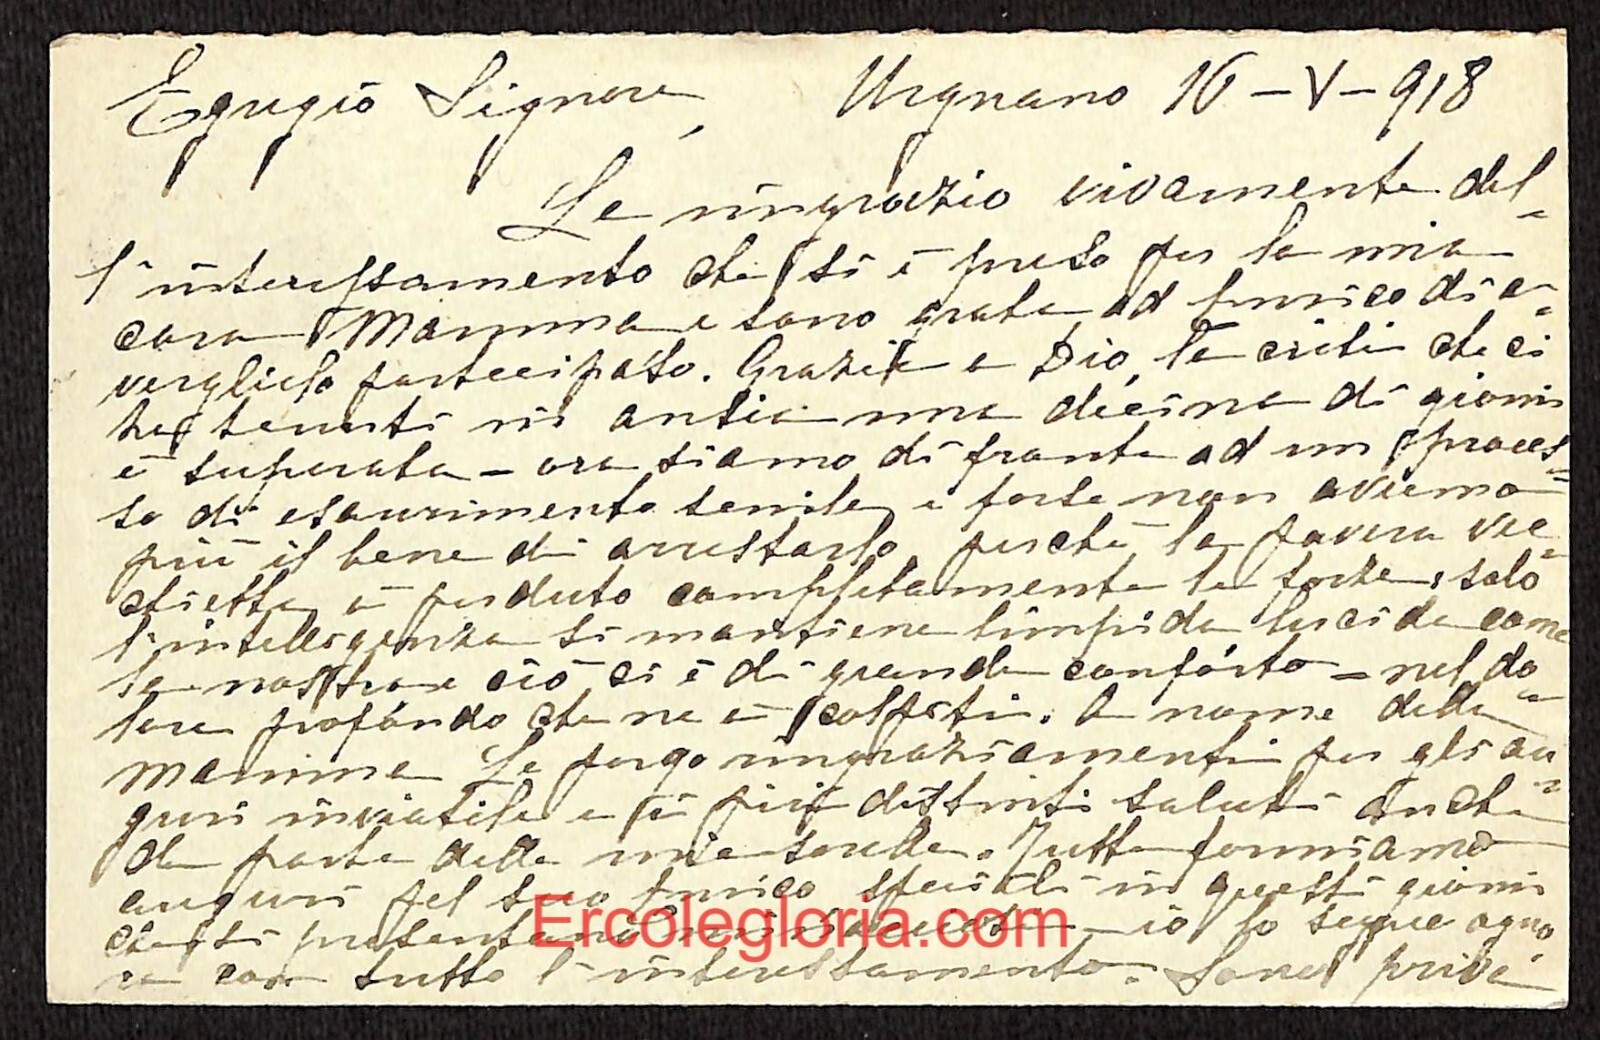 Egregio Signore, Urgnano 16-V-918
Le ringrazio vivamente del-
l'interessamento che si è preso per la mia
cara Mamma e sono grata ad Enrico di a-
verglielo partecipato. Grazie a Dio, la crisi che ci
ha tenuti in ansia una decina di giorni
è superata - ora siamo di fronte ad un proces-
so di esaurimento senile e forse non avremo
più il bene di arrestarlo, perchè la povera vec-
chietta à perduto completamente le forze, solo
l'intelligenza si mantiene limpida lucida come
la nostra e ciò ci è di grande conforto - nel do-
lore profondo che ne à colpiti. A nome della
Mamma Le porgo ringraziamenti per gli au-
guri inviatile e i più distinti saluti anche
da parte delle mie sorelle. Tutte formiamo
auguri pel suo Enrico speciali in questi giorni
che si presentano minacciosi - io lo seguo ogno-
ra con tutto l'interessamento. Sono priva
Ercolegloria.com